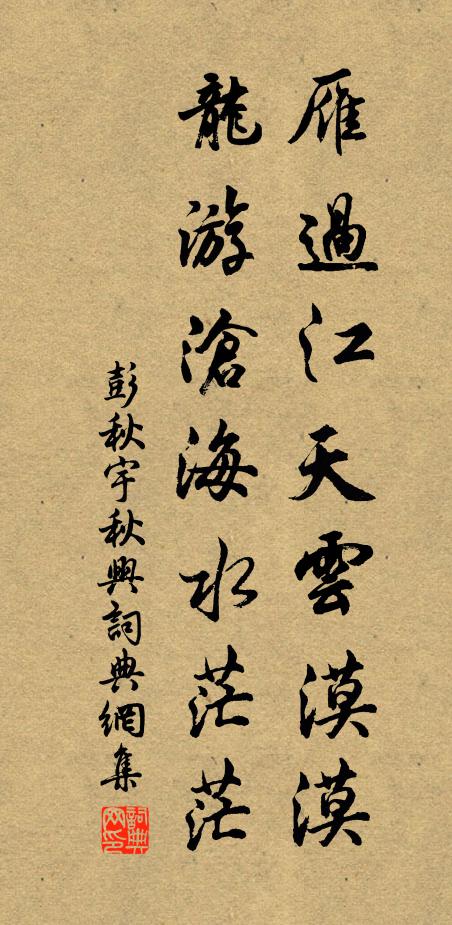 雁過江天雲漠漠
龍游滄海水茫茫
彭秋宇秋興詞典網集
詞典網印